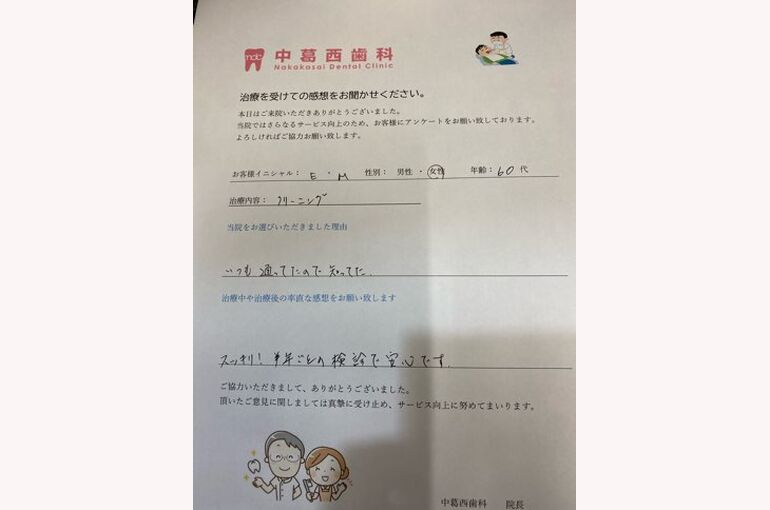 ndc 中葛西歯科
Nakakasai Dental Clinic
治療を受けての感想をお聞かせください。
本日はご来院いただきありがとうございました。
当院ではさらなるサービス向上のため、お客様にアンケートをお願い致しております。
よろしければご協力お願い致します。
お客様イニシャル： E ・ M 性別： 男性 ・ 女性 年齢：60 代
治療内容： クリーニング
当院をお選びいただきました理由
いつも 通ってたので 知ってた.
治療中や治療後の率直な感想をお願い致します
スッキリ! 半年ごとの検診で安心です.
ご協力いただきまして、ありがとうございました。
頂いたご意見に関しましては真摯に受け止め、サービス向上に努めてまいります。
中葛西歯科 院長